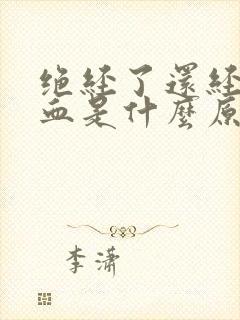 绝经了還经
血是什麼原
李潇